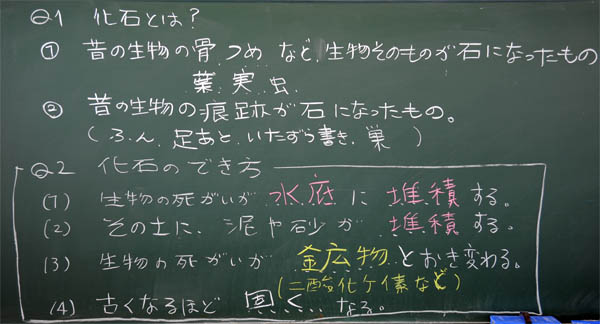 Q1 化石とは?
① 昔の生物の骨、つめ など、生物そのものが石になったもの
葉、実、虫、
② 昔の生物の痕跡が石になったもの。
(ふん、足あと、いたずら書き、巣)
Q2 化石のでき方
(1) 生物の死がいが 水底 に 堆積 する。
(2) その土に、泥や砂が 堆積 する。
(3) 生物の死がいが 鉱物 とおき変わる。
(二酸化ケイ素など)
(4) 古くなるほど 固く なる。